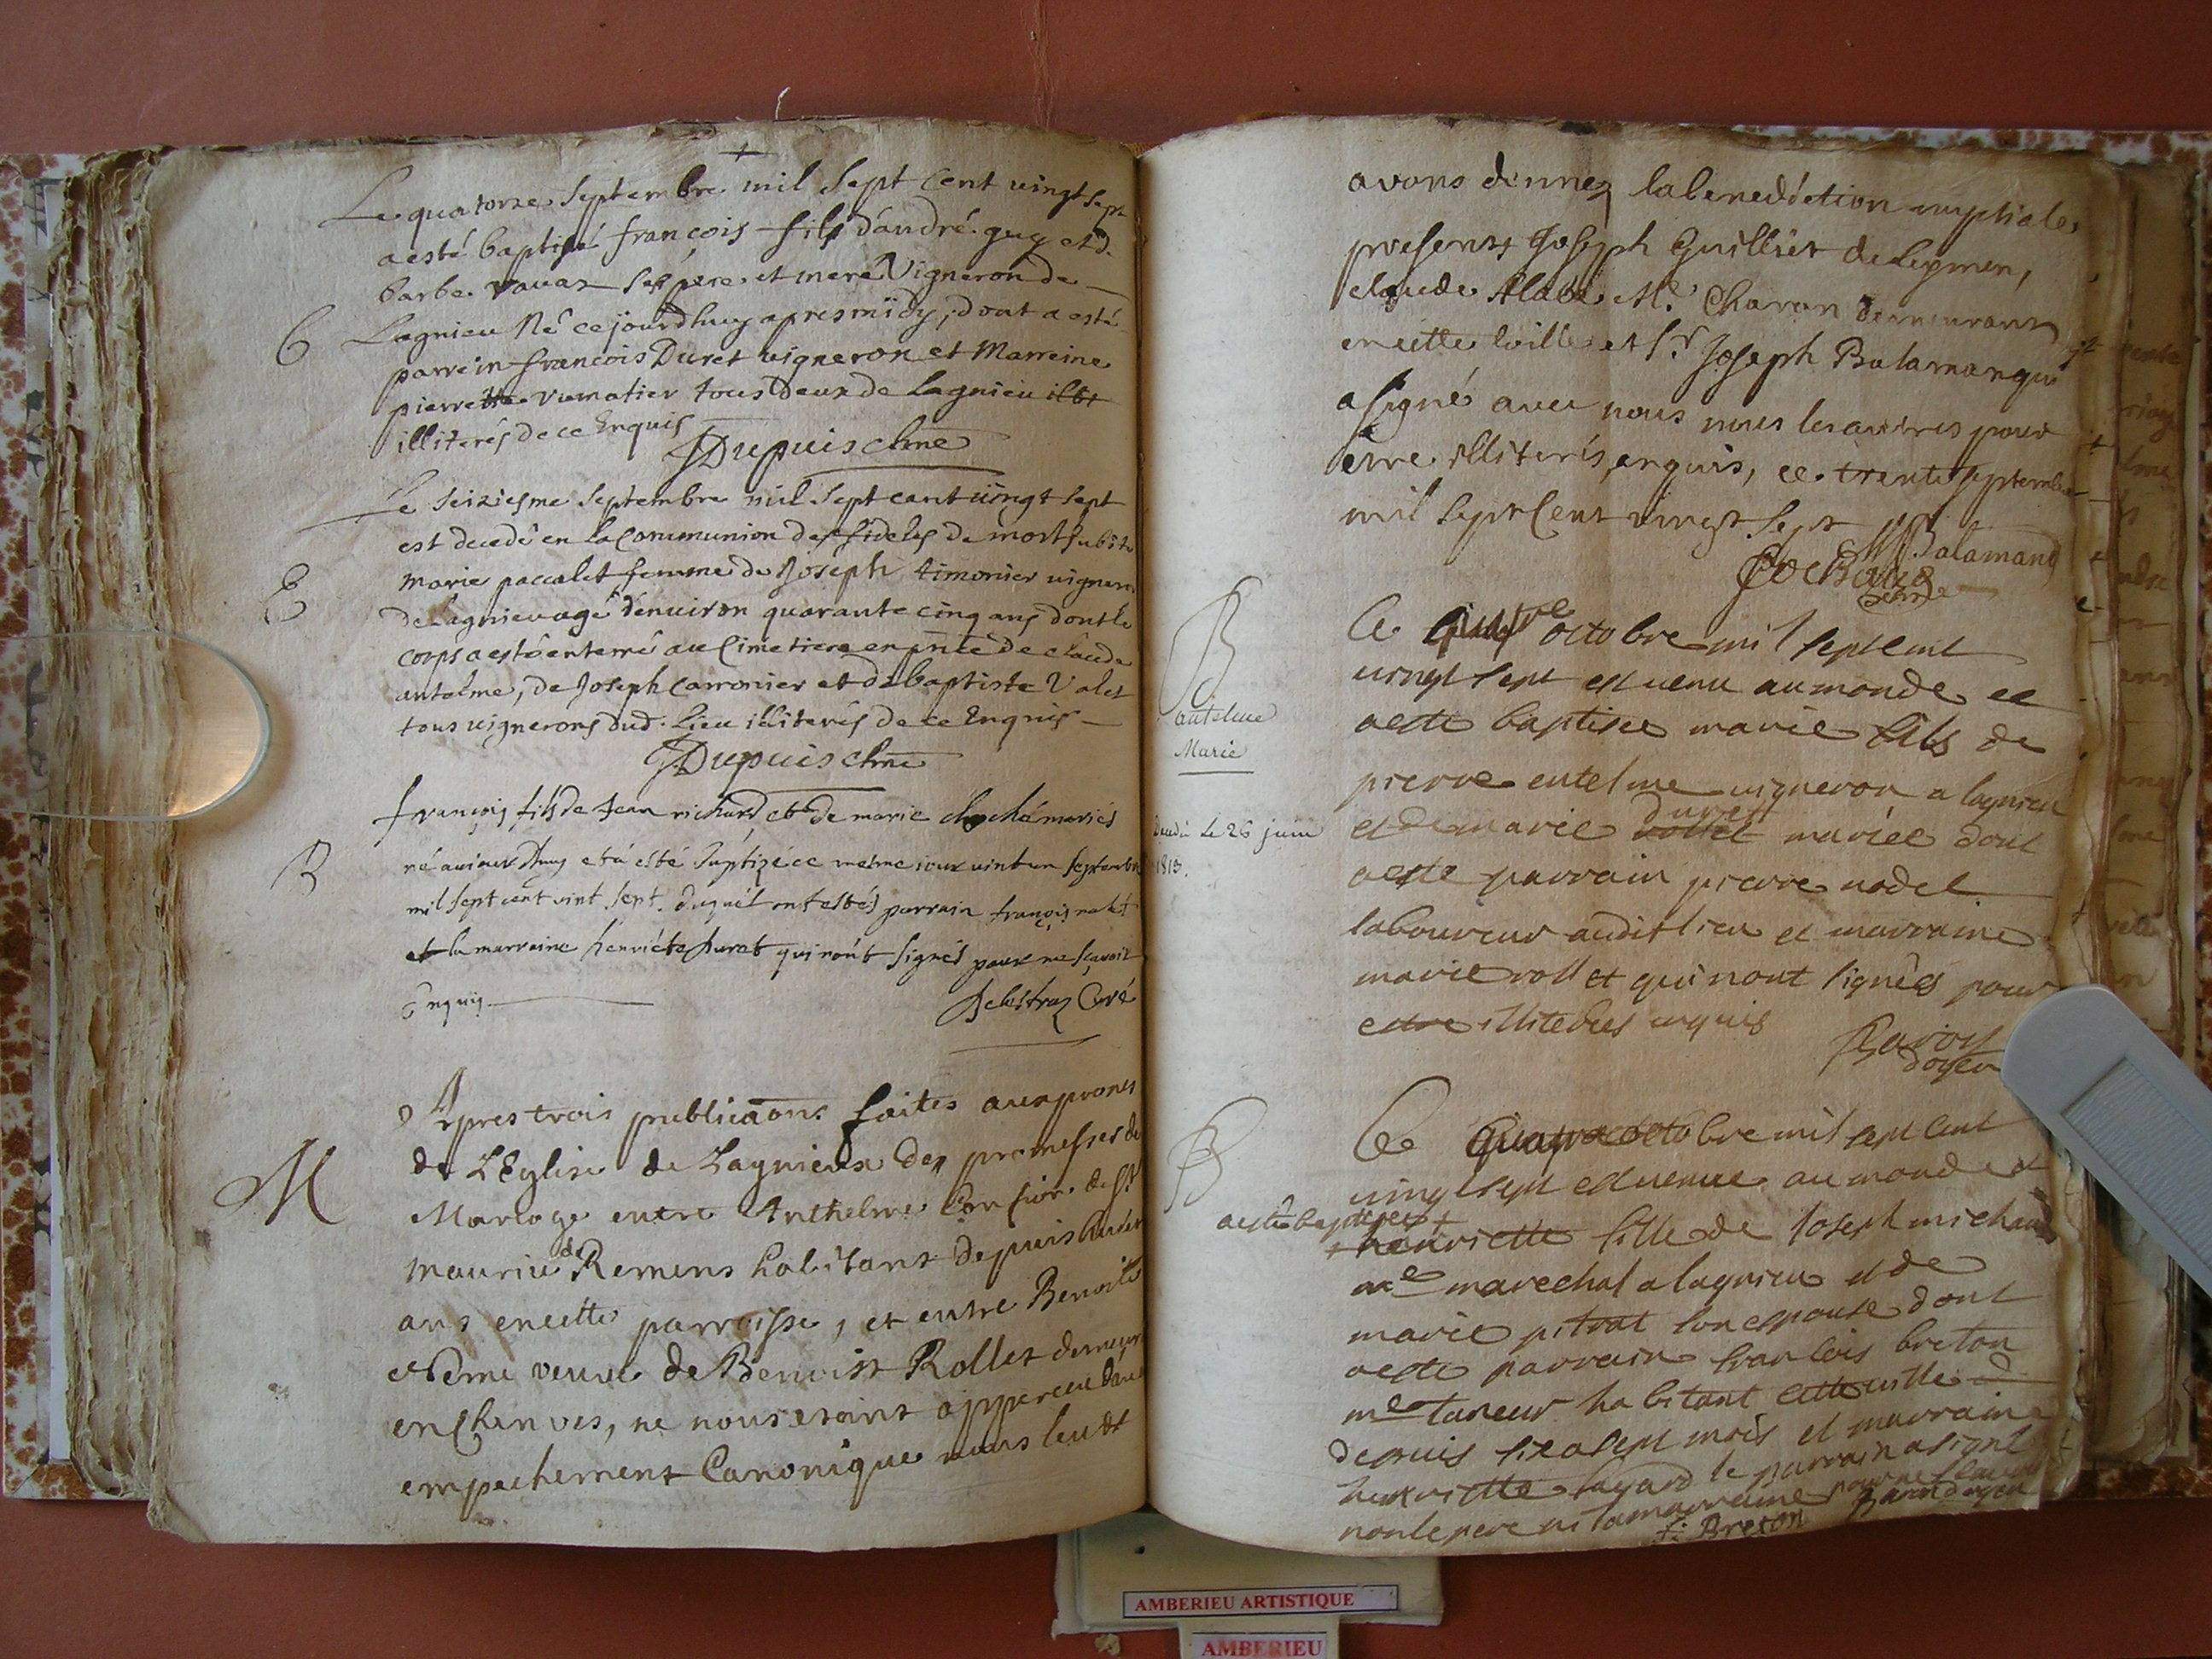 Le quatorze Septembre mil Sept Cent vingt sept
a esté baptisé francois fils d'andré guy et d.
barbe vavaz Ses pere et mere Vigneron de
B
Lagnieu Né cejourdhuy apres midy, dont a esté
parrein francois Duret vigneron et Marreine
pierrette vumatier tous deux de Lagnieu
illiterés de ce Enquis
JDupuis chne
Le Seiziesme Septembre mil Sept cent vingt Sept
est decedé en La Communion des fideles de mort subite
E
Marie paccalet femme de Joseph timonier vigneron
de Lagnieu agé d'environ quarante cinq ans dont le
corps a esté enterré au Cimetiere en pnce de claude
antelme, de Joseph Carronier et de baptiste Valet
tous vignerons dud. Lieu illiterés de ce Enquis
JDupuis chne
françois fils de Jean richard et de marie mariés
B
né aujourdhuy et a esté baptizé ce mesme jour vint un Septembre
mil sept cent vint sept. duquel ont estés parrain françois
et la marraine henriete Duret qui n'ont Signés pour ne Sçavoir
Enquis
Delestraz Curé
Apres trois publicaons faites aux prones
de L'Eglise de Lagnieu des promesses de
M
Mariage entre Anthelme de St
Maurice de Remens habitant depuis
ans en cette parroisse, et entre Benoite
veuve de Benoist Rollet
en Chanves, ne nous etant apperceu d'auc
empechement Canonique nous leur
avons donnez la benediction nuptiale,
presents Joseph Guillier de Leymen,
claude Me Charon demeurant
en cette ville et Sr Joseph Balaman qui
a signé avec nous les autres pour
etre illiterés, enquis, ce trente septembre
mil sept Cent vingt sept
Balamand
B
antelme
Marie
Le octobre mil sept cent
vingt sept est venu au monde et
a esté baptisee marie fils de
pierre entelme vigneron a lagnieu
duret
et de marie mariée dont
decedé le 26 juin
1813.
a esté parrain pierre nodet
laboureur audit lieu et marraine
marie rollet qui nont signés pour
estre illiterees enquis
Savoy
doyen
B
Le quatre octobre mil sept cent
vingt sept est venue au monde et
a esté baptisee
henriette fille de Joseph michaud
me marechal a lagnieu et de
marie pitrat son espouse dont
a esté parrain francois breton
me taneur habitant cette ville
depuis six a sept mois et marraine
henriette le parrain a signé
non le pere ni la marraine pour ne scavoir
f: Breton
AMBERIEU ARTISTIQUE
AMBERIEU